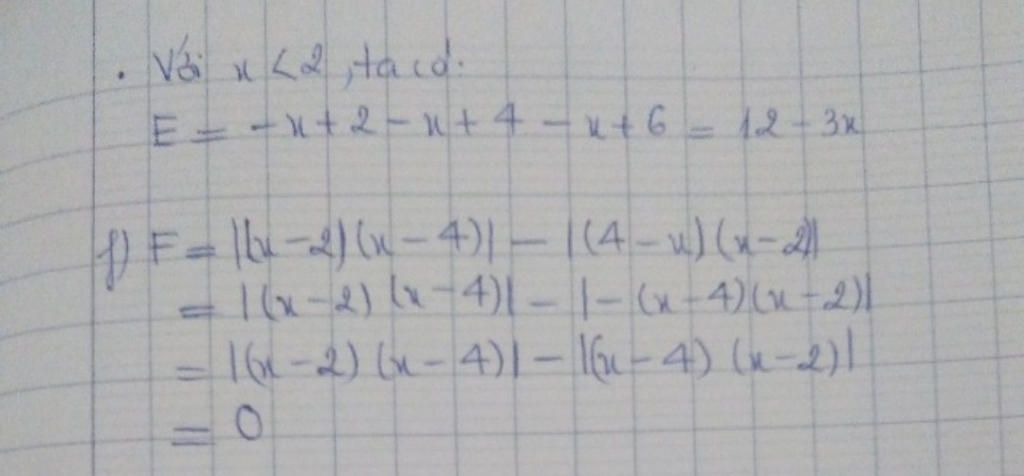 . Với x < 2, ta có:
E = -x + 2 - x + 4 - x + 6 = 12 - 3x
f) F = |(x - 2)(x - 4)| - |(4 - x)(x - 2)|
= |(x - 2)(x - 4)| - |-(x - 4)(x - 2)|
= |(x - 2)(x - 4)| - |(x - 4)(x - 2)|
= 0